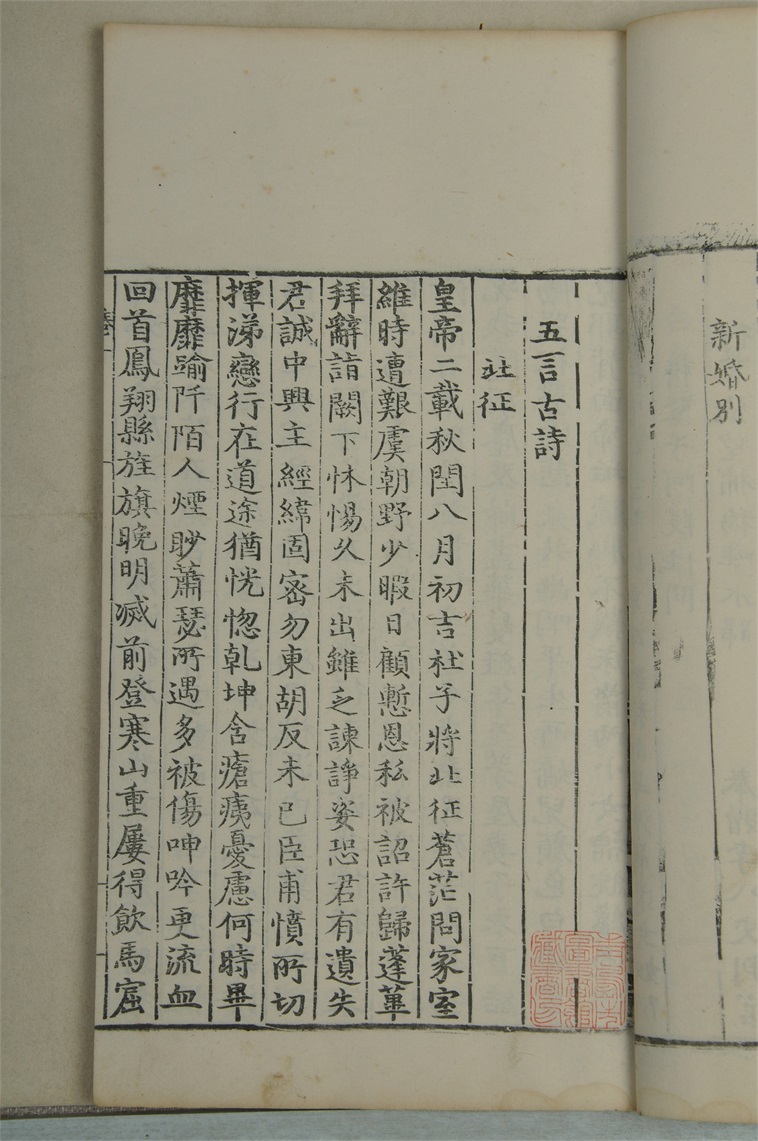 新婚別
五言古詩
北征
皇帝二載秋閏八月初吉杜子將北征蒼茫問家室
維時遭艱虞朝野少暇日顧慙恩私被詔許歸蓬蓽
拜辭詣闕下怵惕久未出雖乏諫諍姿恐君有遺失
君誠中興主經緯固密勿東胡反未已臣甫憤所切
揮涕戀行在道途猶恍惚乾坤含瘡痍憂慮何時畢
靡靡踰阡陌人煙眇蕭瑟所遇多被傷呻吟更流血
回首鳳翔縣旌旗晚明滅前登寒山重屢得飲馬窟